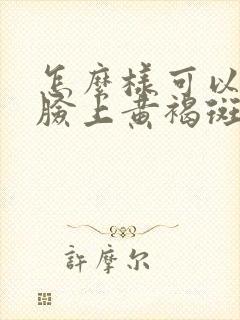 怎麼樣可以
臉上黃褐斑
許摩尔